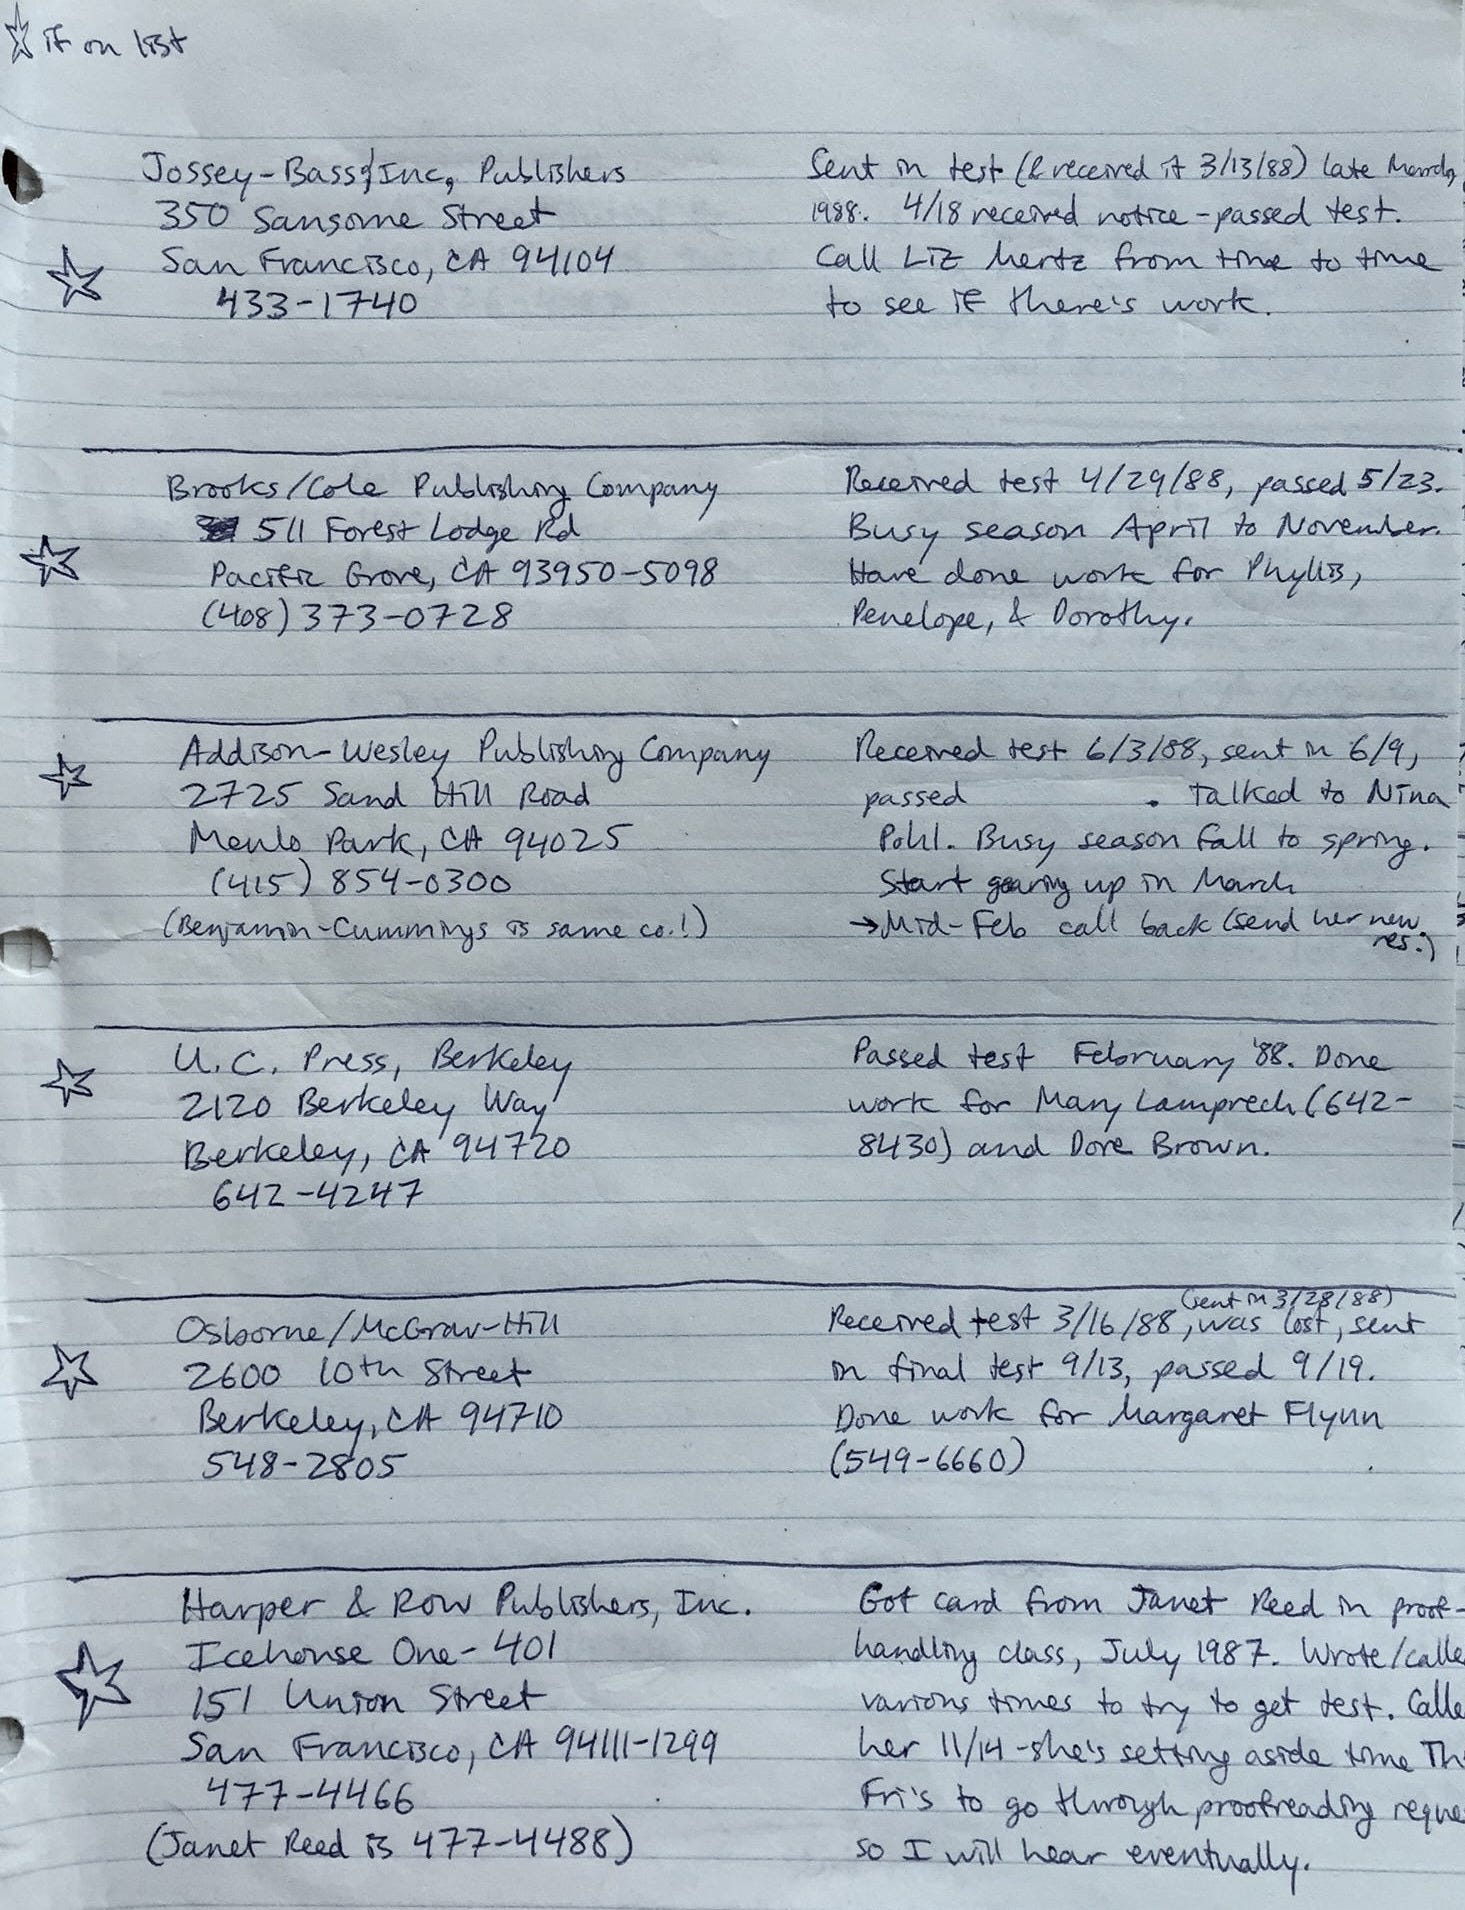 ☆ if on list
Jossey-Bass, Inc, Publishers
350 Sansome Street
San Francisco, CA 94104
433-1740
Sent in test (& received it 3/13/88) late March,
1988. 4/18 received notice - passed test.
Call Liz Hertz from time to time
to see if there's work.
Brooks/Cole Publishing Company
511 Forest Lodge Rd
Pacific Grove, CA 93950-5098
(408) 373-0728
Received test 4/29/88, passed 5/23.
Busy season April to November.
Have done work for Phyllis,
Penelope, & Dorothy.
Addison-Wesley Publishing Company
2725 Sand Hill Road
Menlo Park, CA 94025
(415) 854-0300
(Benjamin-Cummings is same co.!)
Received test 6/3/88, sent in 6/9,
passed . Talked to Nina
Pohl. Busy season fall to spring.
Start gearing up in March
→Mid-Feb call back (send her new
res.)
U.C. Press, Berkeley
2120 Berkeley Way
Berkeley, CA 94720
642-4247
Passed test February '88. Done
work for Mary Lamprech (642-
8430) and Dore Brown.
Osborne/McGraw-Hill
2600 10th Street
Berkeley, CA 94710
548-2805
(sent in 3/28/88)
Received test 3/16/88, was lost, sent
in final test 9/13, passed 9/19.
Done work for Margaret Flynn
(549-6660)
Harper & Row Publishers, Inc.
Icehouse One - 401
151 Union Street
San Francisco, CA 94111-1299
477-4466
(Janet Reed is 477-4488)
Got card from Janet Reed in proof-
handling class, July 1987. Wrote/calle
various times to try to get test. Calle
her 11/14 - she's setting aside time Th
Fri's to go through proofreading reque
so I will hear eventually.